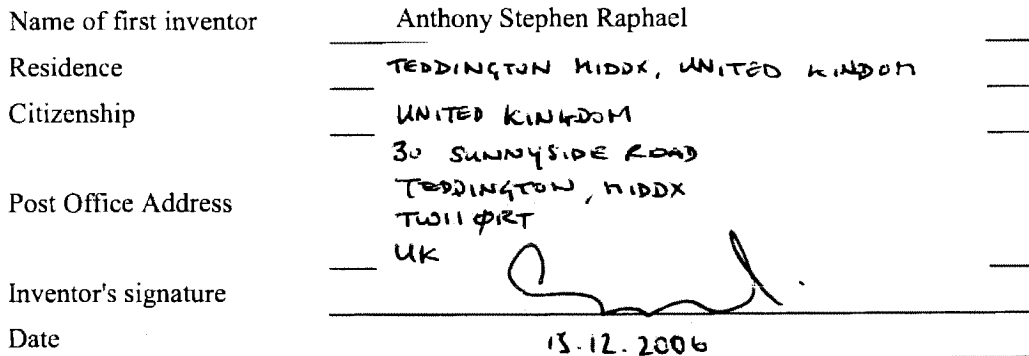 Name of first inventor Anthony Stephen Raphael
Residence TEDDINGTON MIDDX, UNITED KINDOM
Citizenship UNITED KINGDOM
30 SUNNYSIDE ROAD
TEDDINGTON, MIDDX
Post Office Address
TW11 0RT
UK
Inventor's signature
Date 15.12.2006